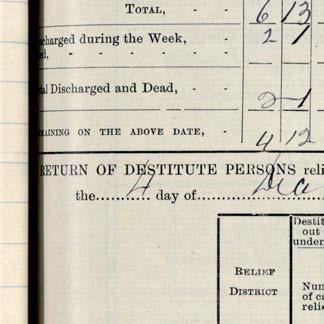 TOTAL, - - 6 13
charged during the Week, - 2 1
ed, " - " - " -
al Discharged and Dead, - 2 1
MAINING ON THE ABOVE DATE, - 4 12
RETURN OF DESTITUTE PERSONS reli
the 4 day of
RELIEF
DISTRICT
Destit
out
under
Num
of ca
relie